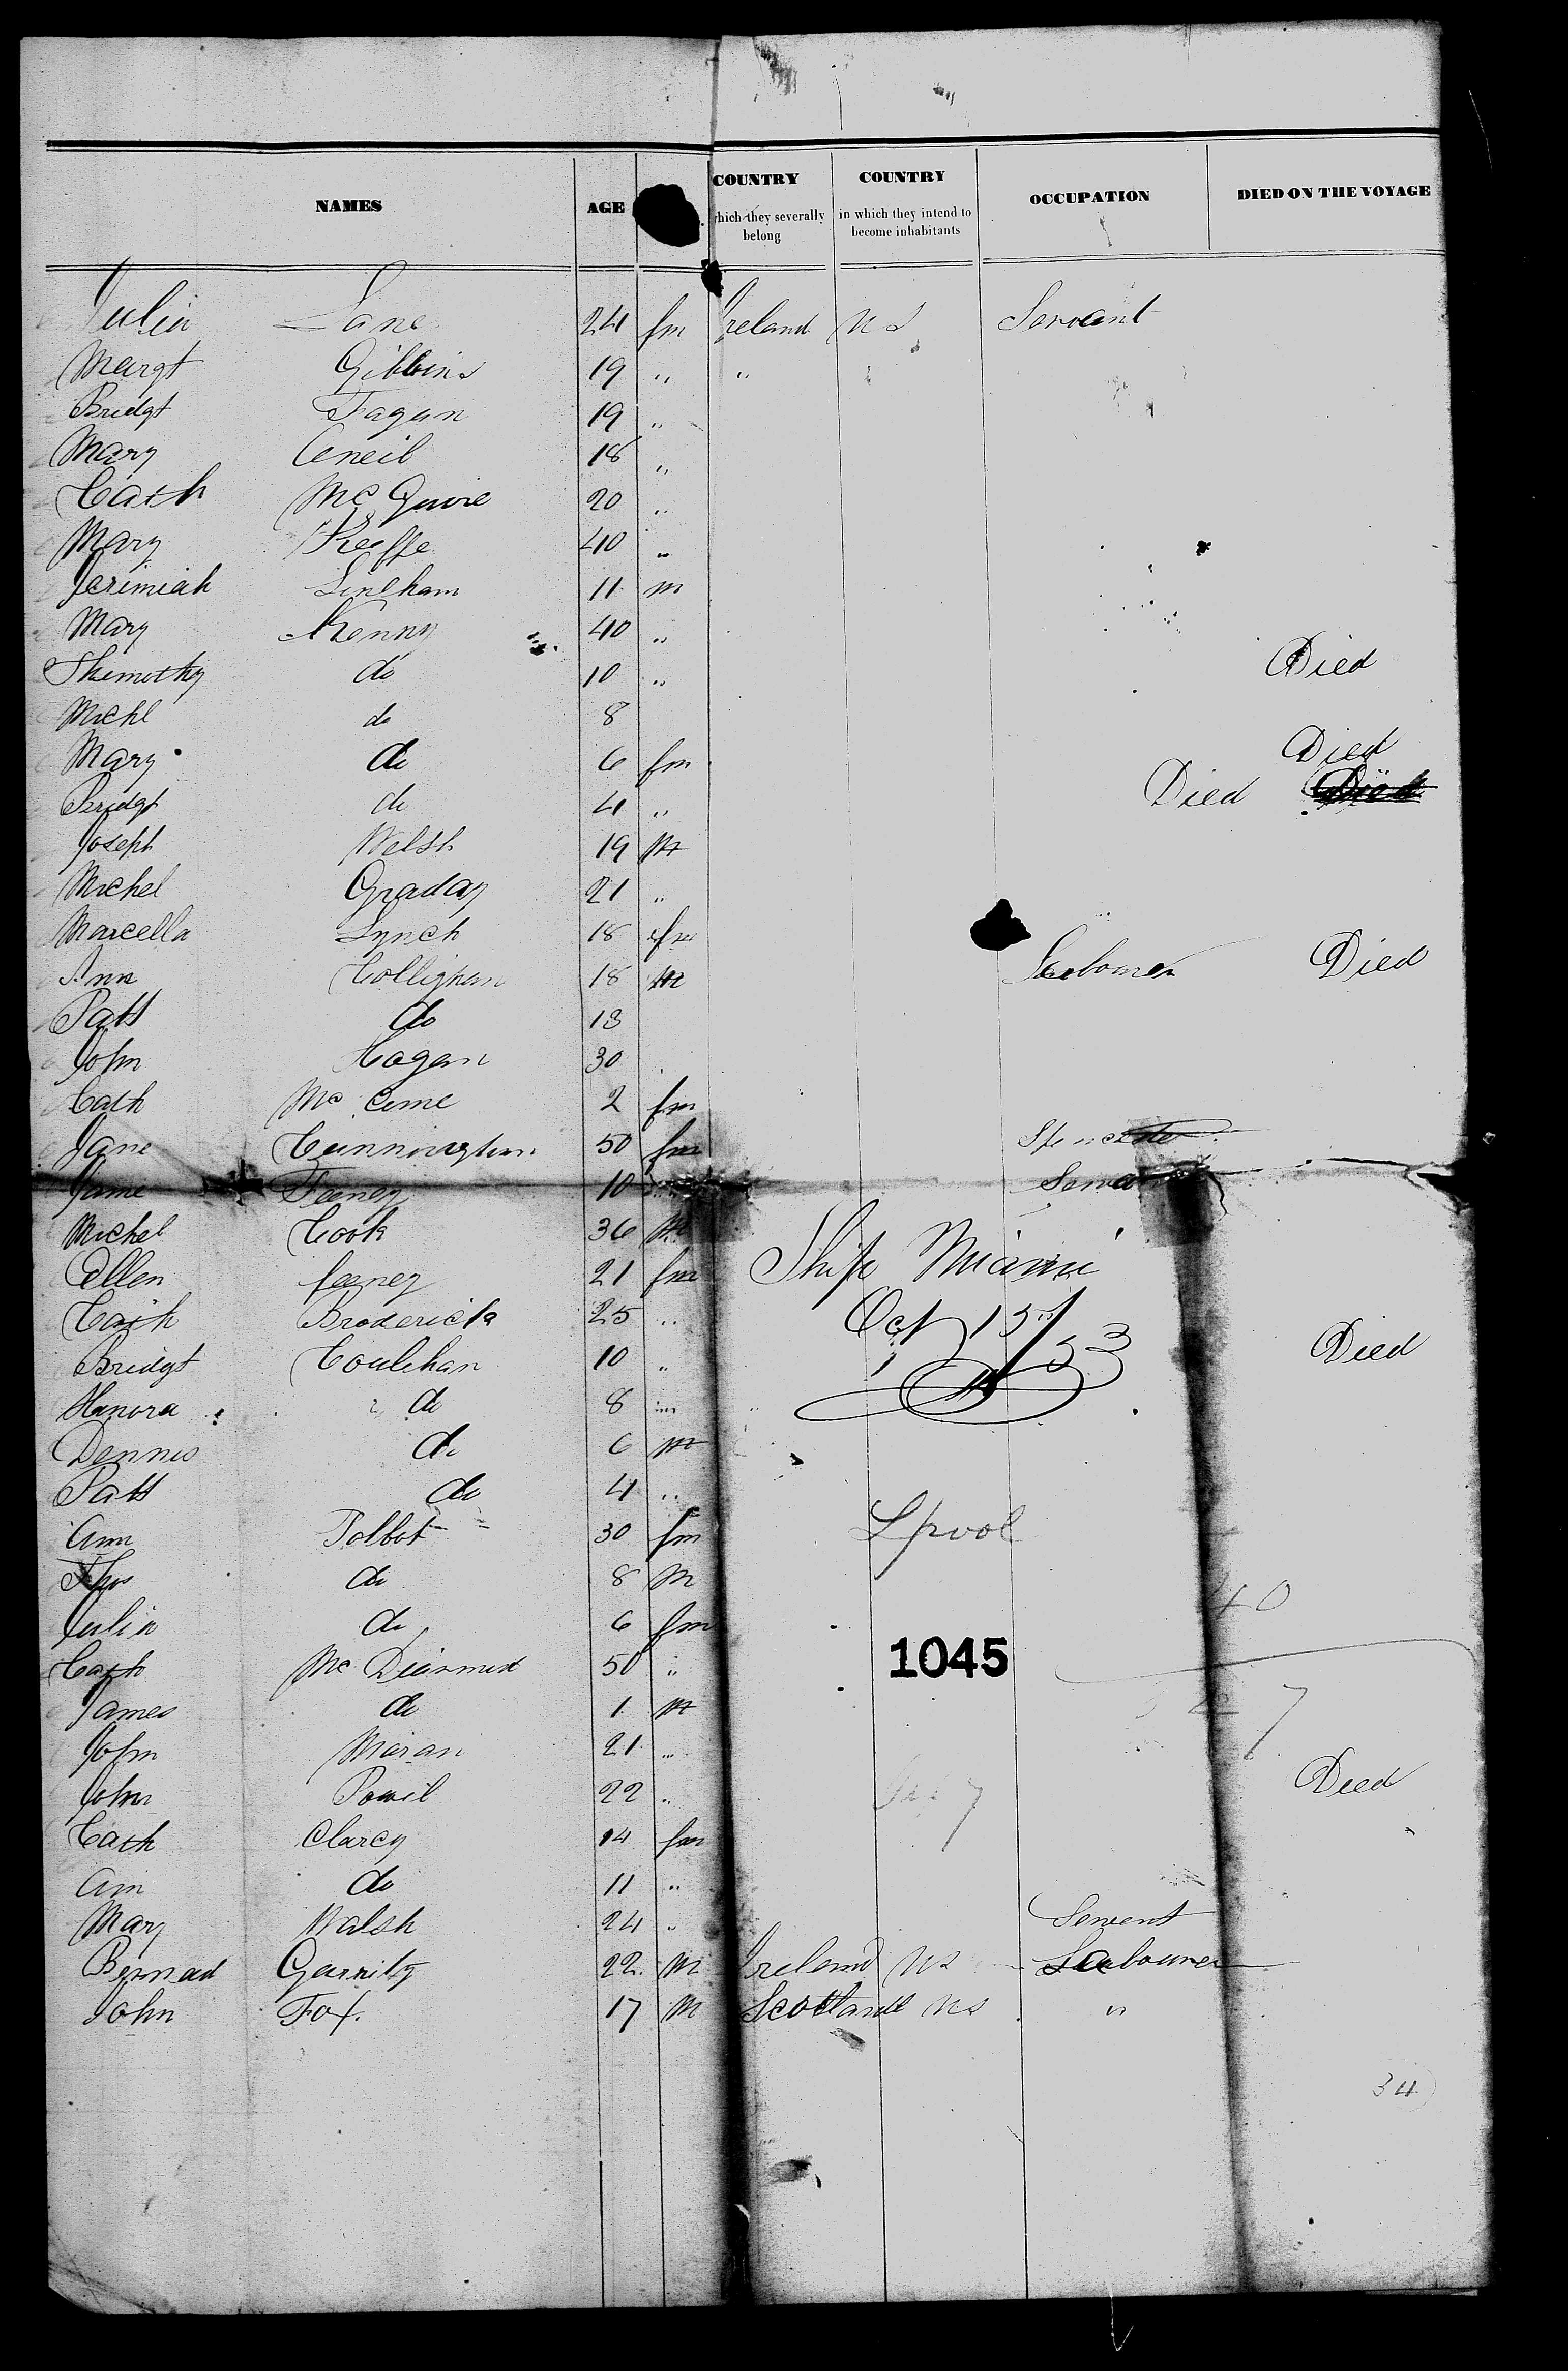 NAMES AGE COUNTRY which they severally belong COUNTRY in which they intend to become inhabitants OCCUPATION DIED ON THE VOYAGE
Julia Lane 24 fm Ireland U S Servant
Margt Gibbins 19 " "
Bridgt Fagan 19 "
Mary Oneil 18 "
Cath McGuire 20 "
Mary Keeffe 40 "
Jerimiah Lineham 11 m
Mary Kenny 40 "
Thimothy do 10 " Died
Michl do 8
Mary do 6 fm Died
Bridgt do 4 " Died Died
Joseph Welsh 19 M
Michel Graday 21 "
Marcella Lynch 18 fm
Ann Collighan 18 M Labourer Died
Patt do 13
John Hagan 30
Cath Mc 2 fm
Jane Cunningham 50 fm Spinster
Jame Feeney 10
Michel Cook 36 M
Ship Miami
Ellen feeney 21 fm
Cath Broderick 25 "
Oct 15th/53
Bridgt Coulihan 10 " Died
Hanora do 8
Dennis do 6 M
Patt do 4 "
Lpool
Ann Tolbot 30 fm
Thos do 8 M
40
Julia do 6 fm
Cath McDiarmid 50 "
1045
James do 1 M
John Moran 21 "
John Powil 22 " Died
Cath Clarcy 14 fm
Ann do 11 "
Mary Walsh 24 " Servent
Bernad Garrity 22 M Ireland U S Labourer
John Fox 17 M Scotland U S "
34